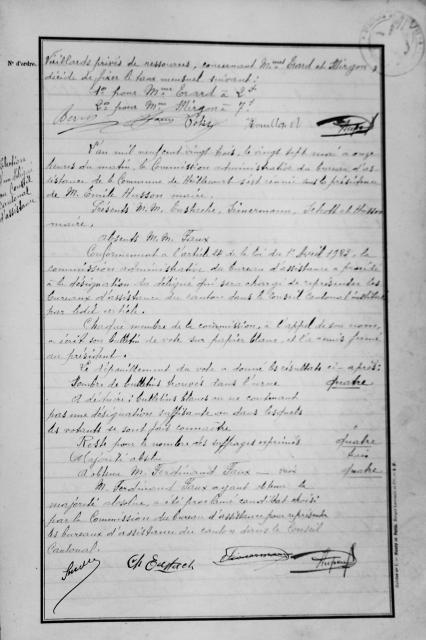 N° d'ordre.
Vieillards privés de ressources, concernant Mmes Erard et Mirgon
décide de fixer le taux mensuel suivant :
1° pour Mme Erard à 2f
2° pour Mme Mirgon à 7f
L'an mil neuf cent vingt trois, le vingt sept mai à onze
heures du matin, la Commission administrative du bureau d'as-
sistance de la Commune de s'est réunie sous la présidence
de M. Emile Husson maire.
Présents M.M. Eustache, Schott et Husson
maire.
Absents M.M. Faux
Conformément à l'article 24 de la loi du 1er Avril 1923, la
commission administrative du bureau d'assistance a procédé
à la désignation du délégué qui sera chargé de représenter les
bureaux d'assistance du canton dans le Conseil Cantonal institué
par ledit article.
Chaque membre de la commission, à l'appel de son nom,
a écrit son bulletin de vote sur papier blanc, et l'a remis fermé
au président.
Le dépouillement du vote a donné les résultats ci-après:
Nombre de bulletins trouvés dans l'urne quatre
A déduire : bulletins blancs ou ne contenant
pas une désignation suffisante ou dans lesquels
les votants se sont fait connaître
Reste pour le nombre des suffrages exprimés quatre
Majorité absolue trois
A obtenu M. Ferdinand Faux — voix quatre
M. Ferdinand Faux ayant obtenu la
majorité absolue, a été proclamé candidat choisi
par la Commission du bureau d'assistance pour représenter
les bureaux d'assistance du canton dans le Conseil
Cantonal.
Election
d'un délégué
au Conseil
Cantonal
d'assistance